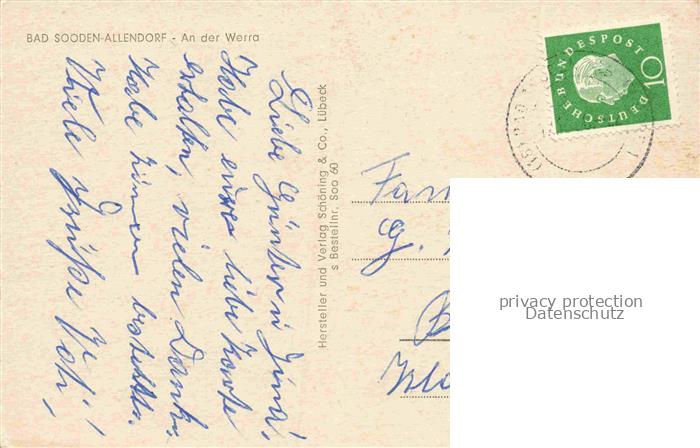 BAD SOODEN-ALLENDORF - An der Werra
Liebe Günter u
Habe eure liebe Karte
erhalten, vielen Dank.
Habe Zimmer bestellt.
Viele Grüße Vati,
Hersteller und Verlag Schöning & Co., Lübeck
s Bestellnr. Soo 60
DEUTSCHE BUNDESPOST
10
Fam
G.
privacy protection
Datenschutz